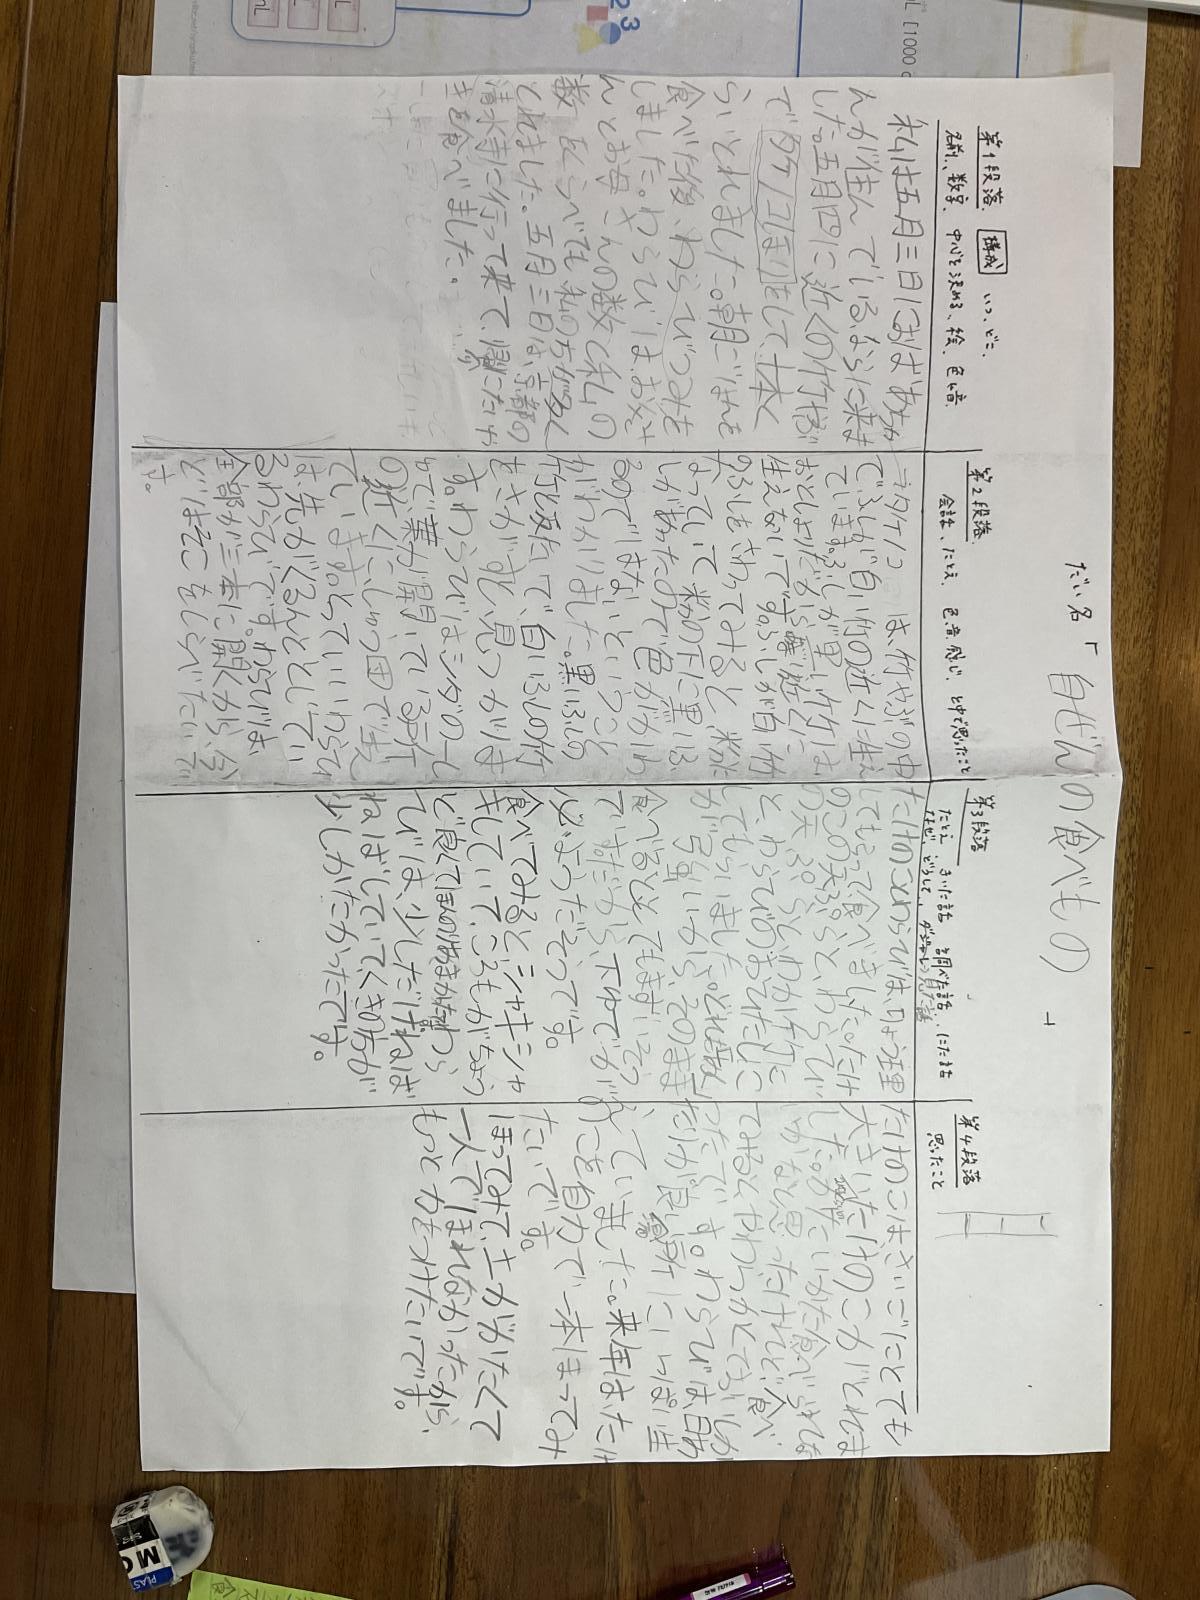 だい名「自ぜんの食べもの
第1段落
構成
いつ、どこ、
名前、数字、中心を決める、絵、色、音
私は五月三日におばあちゃ
んが住んでいるならに来ま
した。五月四日に近くの竹様が
でタケノコほりをして、十本く
らいとれました。朝ごはんを
食べた後、わらびつみを
しました。わらびはお父さ
んとお母さんの数と私の
数をくらべても私の方が多く
とれました。五月三日は京都の
清水寺に行って来て、八つはしや
きを食べました。
第2段落
会話、たとえ、色、音、感じ、と中で思ったこと
タケノコは、竹やぶの中
でふしが白い竹の近くに生え
ています。ふしが黒い竹は
おとしよりだから
生えないです。ふしが白い竹
のふしをさわってみると、粉だ
なっていて粉の下に黒いふ
しがあったので色がかわ
るのではないということ
がわかりました。黒いふしの
竹ばかりで、白いふしの竹
をさがすと、見つかりま
す。わらびはシダの一し
ゅで、葉が開いている所
の近くにしゅつ田で生え
ています。とっていいわらび
は先がくるんととじてい
るわらびです。わらびは
全部が三本に開くから、今
どはそこをしらべたいで
す。
第3段落
たとえ、きいた話、調べた話、にた話
なぜ、どうして、
たけのことわらびは、りょう理
してもらって食べました。たけ
のこの天ぷらと、わらび
の天ぷらとわかたけに
と、わらびのおひたしに
してもらいました。とれ立ては
が弓蛍いから、そのまま
食べるととてもまずいそう
です。だから、下ゆでが
必ようだそうです。
食べてみるとシャキシャ
キしていて、ころもがちょう
ど良くてほんのりあまかったです。わら
びは、少しだけねば
ねばしていて、くきの方が
少しかたかったです。
第4段落
思ったこと
たけのこはさいごにとても
大きいたけのこがとれま
した。かたいかた食べられな
いかなと思ったけれど、食べ
てみるとやわらかくておいしか
ったです。わらびは、日あ
たりが良い所にいっぱい生
えていました。来年はたけ
のこを自力で一本ほってみ
たいです。
ほってみて、土がかたくて
一人でほれなかったから、
もっと力をつけたいです。